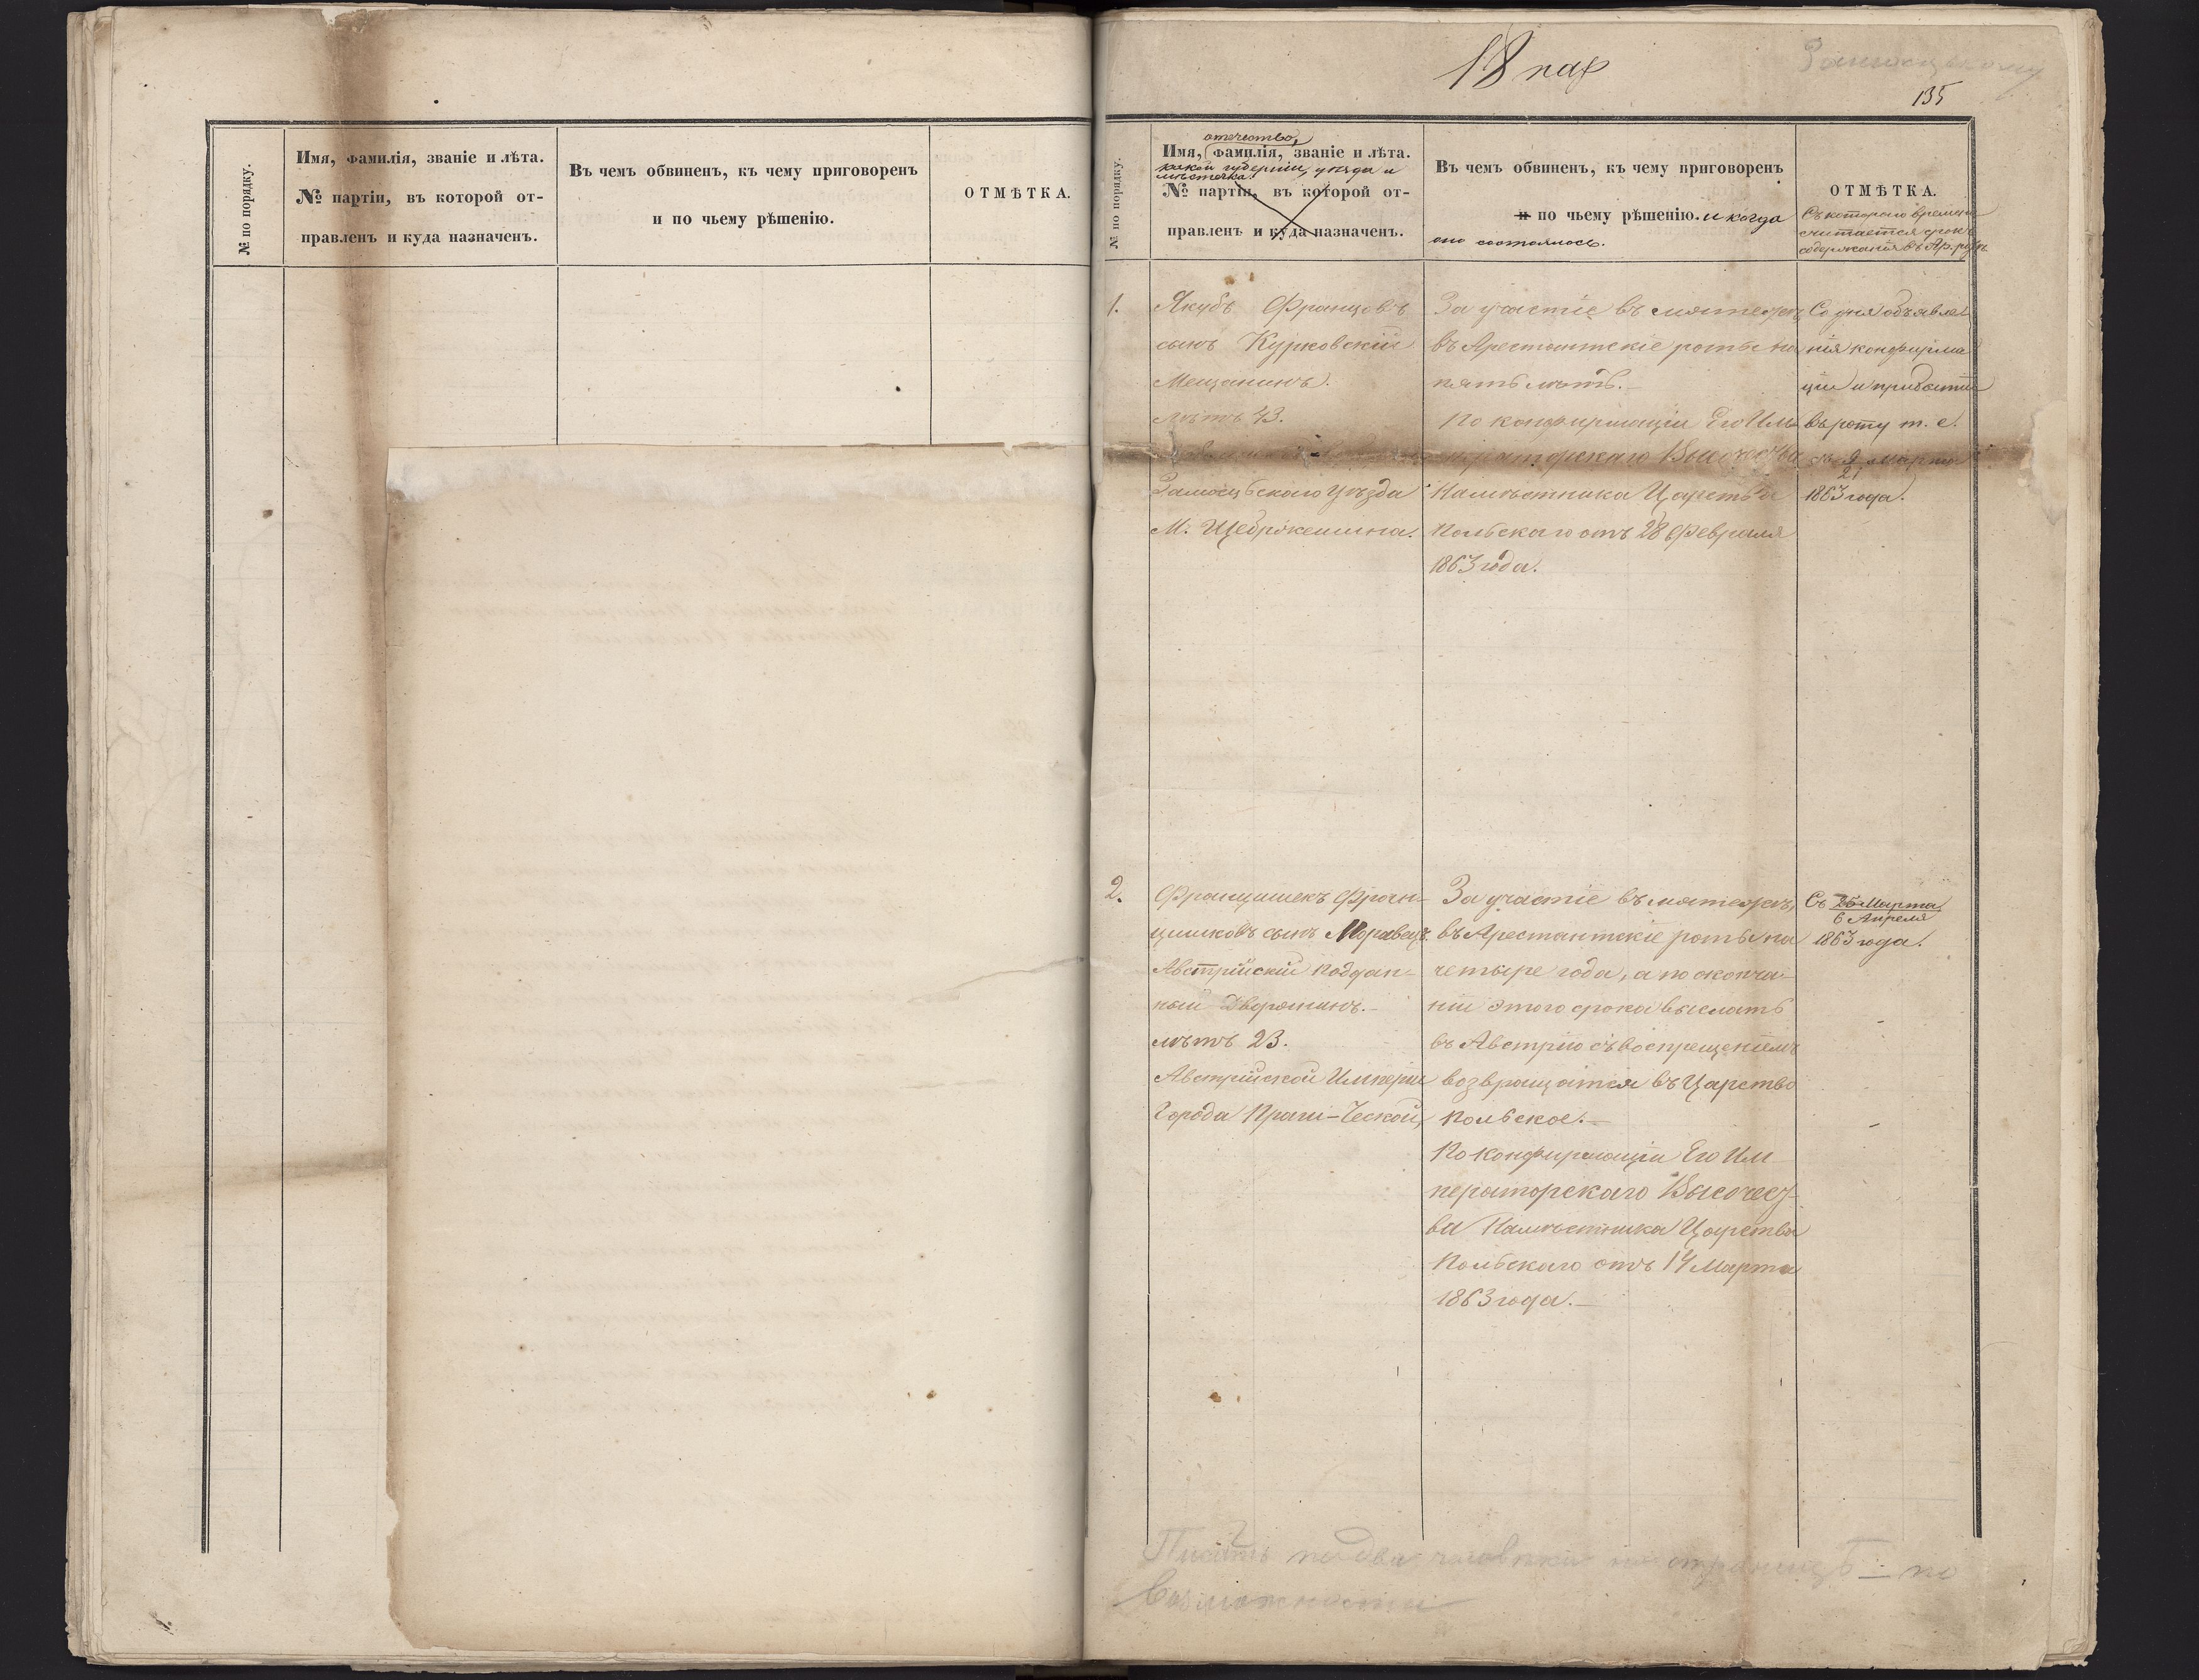 № по порядку.
Имя, фамилія, званіе и лѣта.
№ партіи, въ которой от-
правленъ и куда назначенъ.
Въ чемъ обвиненъ, къ чему приговоренъ
и по чьему рѣшенію.
ОТМѢТКА.
18 пар
135
№ по порядку.
отечество,
Имя, фамилія, званіе и лѣта.
какой губерніи, уѣзда и
мѣстечка.
№ партіи, въ которой от-
правленъ и куда назначенъ.
Въ чемъ обвиненъ, къ чему приговоренъ
и по чьему рѣшенію. и когда
оно состоялось.
ОТМѢТКА.
Съ котораго времени
считается срокъ
содержанія въ Ар. рот.
1.
Якубъ Францовъ
сынъ Курковскій
Мещанинъ.
лѣтъ 43.
Замосцьскаго уѣзда
М. Щебржешина.
За участіе въ мятежѣ,
въ Арестантскіе роты на
пять лѣтъ.
По конфирмаціи Его Им
ператорскаго Высочества
Намѣстника Царства
Польскаго отъ 28 Февраля
1863 года.
Со дня объявле
нія конфирма
ціи и прибытія
въ роту т. е.
съ 9 Марта
21
1863 года.
2.
Францишекъ Фран-
цишковъ сынъ Моравецъ.
Австрійскій поддан-
ный Дворянинъ.-
лѣтъ 23.
Австрійской Имперіи
Города Праги-Ческой,
За участіе въ мятежѣ,
въ Арестантскіе роты на
четыре года, а по оконча-
ніи этого срока выслать
въ Австрію съ воспрещеніемъ
возвращатся въ Царство
Польское.-
По конфирмаціи Его Им
ператорскаго Высочест-
ва Намѣстника Царства
Польскаго отъ 14 Марта
1863 года.-
Съ 25 Марта
6 Апреля
1863 года.
Писать по два человѣка на страницѣ - по
возможности